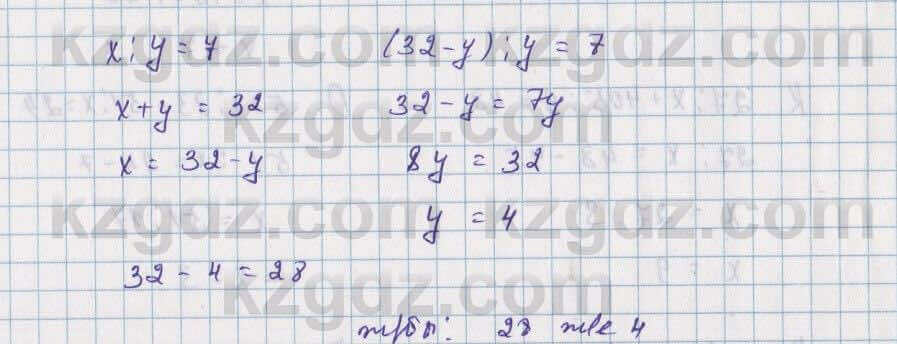 x : y = 7
x + y = 32
x = 32 - y
32 - 4 = 28
(32 - y) : y = 7
32 - y = 7y
8y = 32
y = 4
ж/бы: 28 және 4
kzgdz.com kzgdz.com
kzgdz.com
kzgdz.com kzgdz.com
kzgdz.com